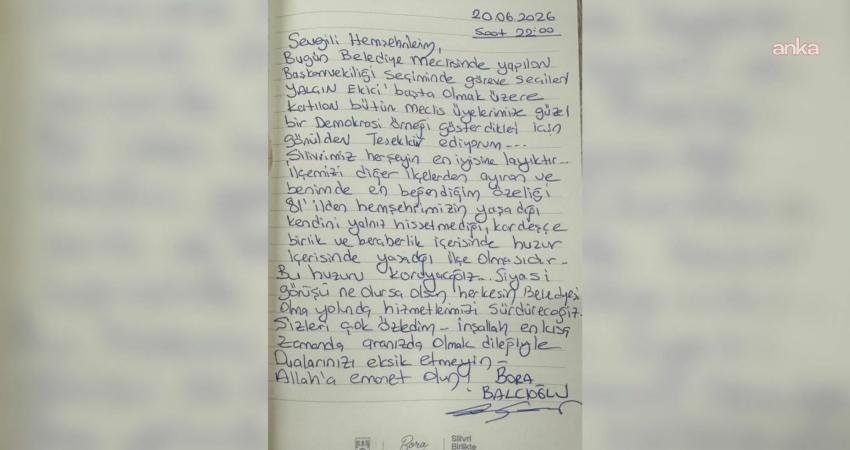 20.06.2026
Saat 22:00
anka
Sevgili Hemşehrilerim,
Bugün Belediye Meclisinde yapılan
Başkanvekilliği seçiminde göreve seçilen
YALÇIN EKİCİ' başta olmak üzere
katılan bütün meclis üyelerimize güzel
bir Demokrasi örneği gösterdikleri için
gönülden Teşekkür ediyorum---
Silivrimiz herşeyin en iyisine layıktır--
ilçemizi diğer ilçelerden ayıran ve
benimde en beğendiğim özeliği
81' ilden hemşehrimizin yaşadığı
kendini yalnız hissetmediği, kardeşçe
birlik ve beraberlik içerisinde huzur
içerisinde yaşadığı ilçe olmasıdır--
Bu huzuru koruyacağız-- Siyasi
görüşü ne olursa olsun herkesin Belediyesi
olma yolunda hizmetlerimizi sürdüreceğiz.
Sizleri çok özledim-- inşallah en kısa
zamanda aranızda olmak dileğiyle
Dualarınızı eksik etmeyin--
Allah'a emanet olun! BORA
BALCIOĞLU
Bora
Silivri
Birlikte